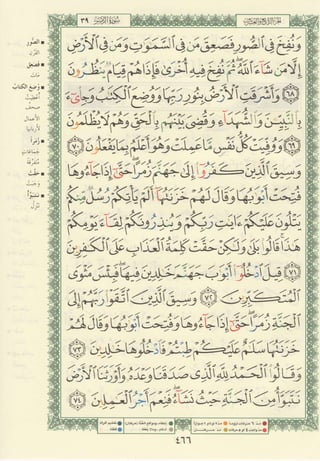 سُورَةُ الزُّمَرِ ٣٩
وَنُفِخَ فِي ٱلصُّورِ فَصَعِقَ مَن فِي ٱلسَّمَٰوَٰتِ وَمَن فِي ٱلْأَرْضِ
إِلَّا مَن شَآءَ ٱللَّهُ ۖ ثُمَّ نُفِخَ فِيهِ أُخْرَىٰ فَإِذَا هُمْ قِيَامٌ يَنظُرُونَ
﴿٦٨﴾ وَأَشْرَقَتِ ٱلْأَرْضُ بِنُورِ رَبِّهَا وَوُضِعَ ٱلْكِتَٰبُ وَجِا۟ىٓءَ
بِٱلنَّبِيِّـۧنَ وَٱلشُّهَدَآءِ وَقُضِيَ بَيْنَهُم بِٱلْحَقِّ وَهُمْ لَا يُظْلَمُونَ
﴿٦٩﴾ وَوُفِّيَتْ كُلُّ نَفْسٍ مَّا عَمِلَتْ وَهُوَ أَعْلَمُ بِمَا يَفْعَلُونَ ﴿٧٠﴾
وَسِيقَ ٱلَّذِينَ كَفَرُوٓا۟ إِلَىٰ جَهَنَّمَ زُمَرًا ۖ حَتَّىٰٓ إِذَا جَآءُوهَا
فُتِحَتْ أَبْوَٰبُهَا وَقَالَ لَهُمْ خَزَنَتُهَآ أَلَمْ يَأْتِكُمْ رُسُلٌ مِّنكُمْ
يَتْلُونَ عَلَيْكُمْ ءَايَٰتِ رَبِّكُمْ وَيُنذِرُونَكُمْ لِقَآءَ يَوْمِكُمْ
هَٰذَا ۚ قَالُوا۟ بَلَىٰ وَلَٰكِنْ حَقَّتْ كَلِمَةُ ٱلْعَذَابِ عَلَى ٱلْكَٰفِرِينَ
﴿٧١﴾ قِيلَ ٱدْخُلُوٓا۟ أَبْوَٰبَ جَهَنَّمَ خَٰلِدِينَ فِيهَا ۖ فَبِئْسَ مَثْوَى
ٱلْمُتَكَبِّرِينَ ﴿٧٢﴾ وَسِيقَ ٱلَّذِينَ ٱتَّقَوْا۟ رَبَّهُمْ إِلَى
ٱلْجَنَّةِ زُمَرًا ۖ حَتَّىٰٓ إِذَا جَآءُوهَا وَفُتِحَتْ أَبْوَٰبُهَا وَقَالَ لَهُمْ
خَزَنَتُهَا سَلَٰمٌ عَلَيْكُمْ طِبْتُمْ فَٱدْخُلُوهَا خَٰلِدِينَ ﴿٧٣﴾
وَقَالُوا۟ ٱلْحَمْدُ لِلَّهِ ٱلَّذِي صَدَقَنَا وَعْدَهُۥ وَأَوْرَثَنَا ٱلْأَرْضَ
نَتَبَوَّأُ مِنَ ٱلْجَنَّةِ حَيْثُ نَشَآءُ ۖ فَنِعْمَ أَجْرُ ٱلْعَٰمِلِينَ ﴿٧٤﴾
٤٦٦